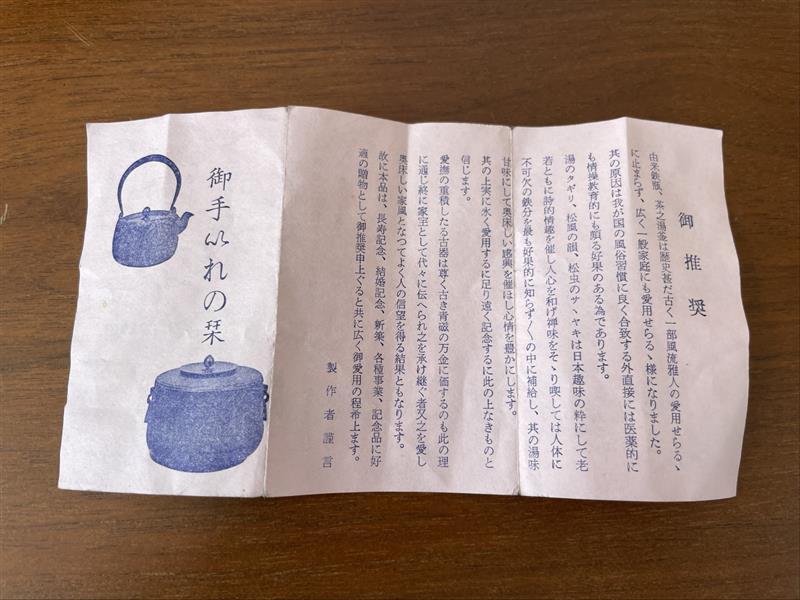 御推奨
由来鉄瓶、茶之湯釜は歴史甚だ古く一部風流雅人の愛用せらるゝ
に止まらず、広く一般家庭にも愛用せらるゝ様になりました。
其の原因は我が国の風俗習慣に良く合致する外直接には医薬的に
も情操教育的にも頗る好果のある為であります。
湯のタギリ、松風の韻、松虫のサヽヤキは日本趣味の粋にして老
若ともに詩的情趣を催し人心を和げ禅味をそゝり喫しては人体に
不可欠の鉄分を最も好果的に知らず〱の中に補給し、其の湯味
甘味にして奥床しい感興を催ほし心情を豊かにします。
其の上実に永く愛用するに足り遠く記念するに此の上なきものと
信じます。
愛撫の重積したる古器は尊く古き青磁の万金に価するのも此の理
に通じ終に家宝として代々に伝へられ之を承け継ぐ者又之を愛し
奥床しい家風となつてよく人の信望を得る結果ともなります。
故に本品は、長寿記念、結婚記念、新築、各種事業、記念品に好
適の贈物として御推奨申上ぐると共に広く御愛用の程希上ます。
製作者謹言
御手いれの栞